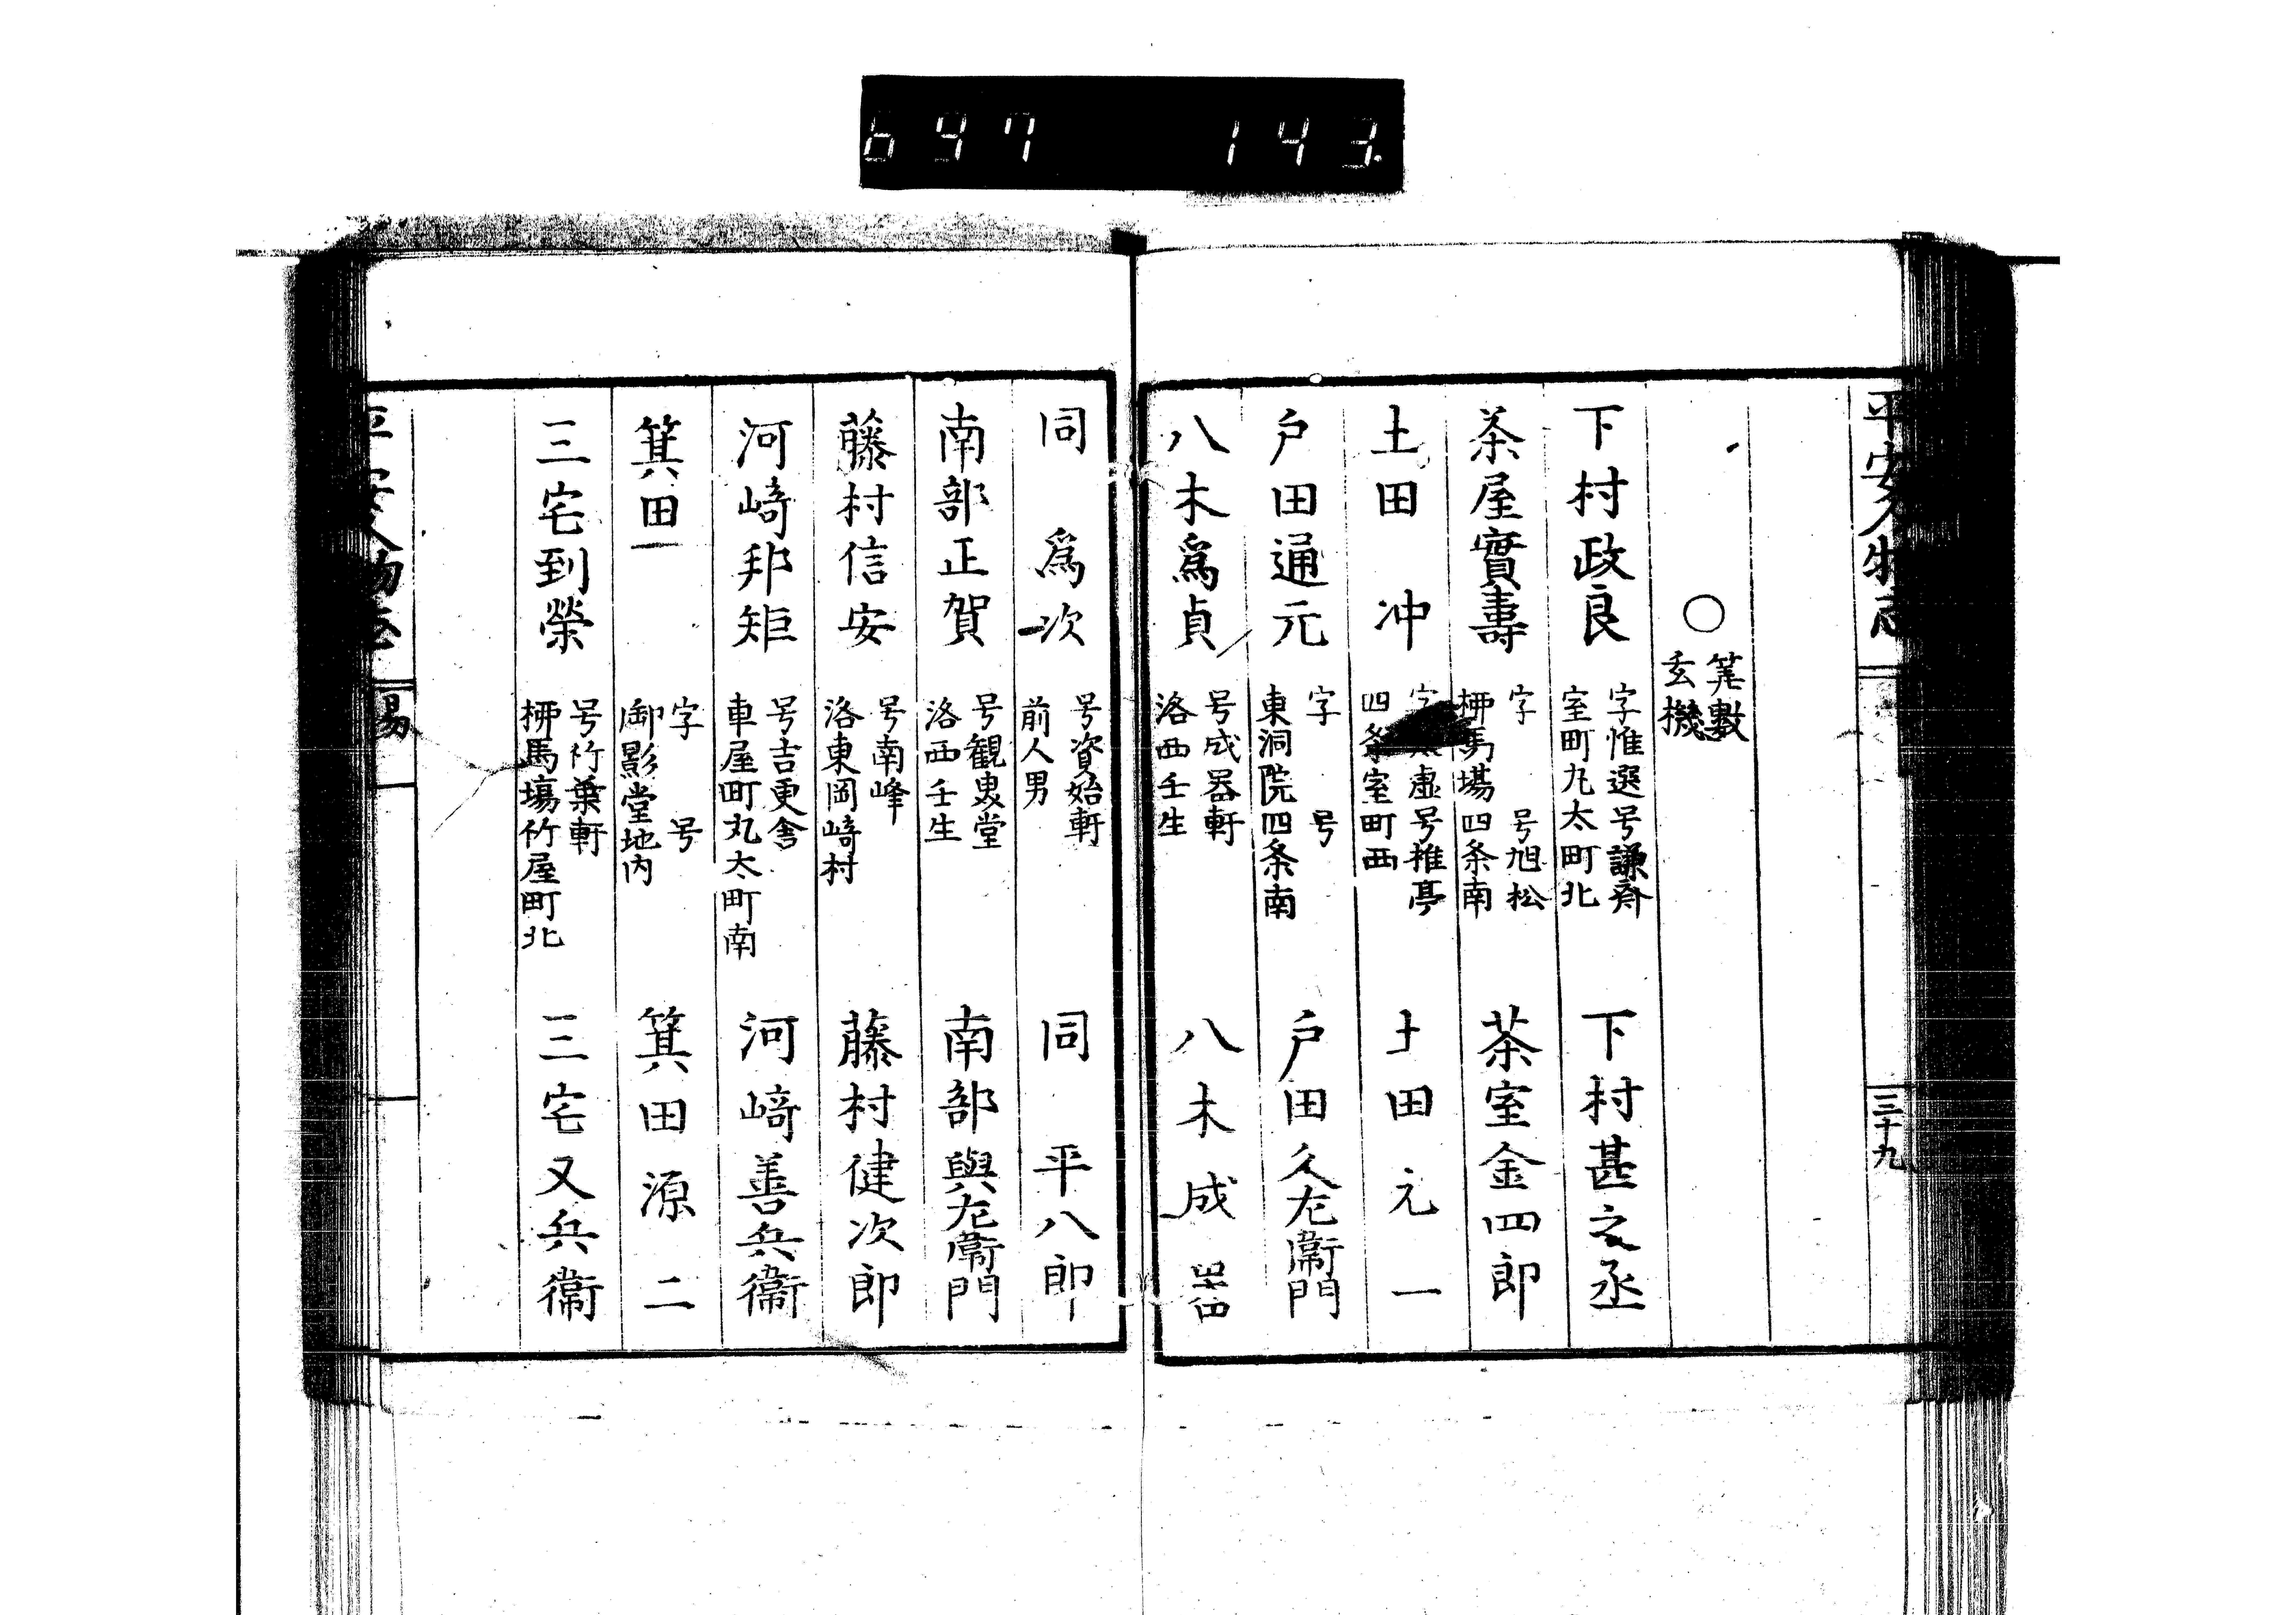 697 143
平安人物志
三十九
○
筭數
玄機
下村政良
字惟選号謙斎
室町丸太町北
下村甚之丞
茶屋實壽
字 号旭松
柳馬場四条南
茶室金四郎
土田冲
虚号推亭
四条室町西
土田元一
戸田通元
字 号
東洞院四条南
戸田久左衛門
八木爲貞
号成器軒
洛西壬生
八木成器
同爲次
号資始軒
前人男
同平八郎
南部正賀
号観叟堂
洛西壬生
南部與左衛門
藤村信安
号南峰
洛東岡﨑村
藤村健次郎
河﨑邦矩
号吉更舎
車屋町丸太町南
河﨑善兵衛
箕田一
字 号
御影堂地内
箕田源二
三宅到榮
号竹葉軒
柳馬場竹屋町北
三宅又兵衛
平安人物志
易